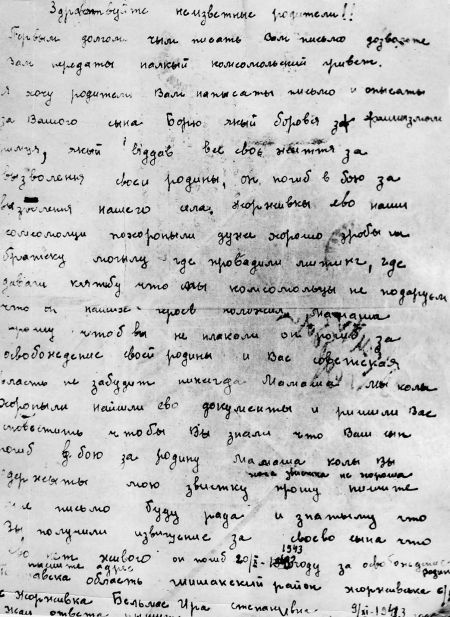 Здраствуйте неизвестные родители!!
Первым долгом чым писать Вам письмо дозвольте
Вам передаты палкый комсомольский привет.
Я хочу родители Вам написаты письмо и описаты
за Вашого сына Борю якый боровся за фашизмом
якый віддав все своє життя за
вызволения своєи родины, он погиб в бою за
вызволения нашего села Жорнивкы ево наши
комсомолци похоронылы дуже хорошо зробылы
братску могылу где провадили митинг, где
давали клятбу что мы комсомольцы не подаруем
что он наших кров положил Мамаша
прошу чтоб вы не плакали он погиб за
освобождение своей родины и Вас советская
власть не забудит никогда Мамаша мы колы
хоронылы найшли ево документы и ришили Вас
сповистить чтобы Вы знали что Ваш сын
погиб в бою за родину Мамаша колы Вы
хотя звистка не хороша
одержыты мою звистку прошу пишите
мне письмо буду рада и знатыму что
Вы получили извищение за своево сына что
ево нет живого он погиб 20/ІХ-1943 году за освобождение родины
пишите адрес
область шишакский район жорнивська с/с
с Жорнивка Бельмас Ира степановна 9/ІІ-1943
Жду ответа